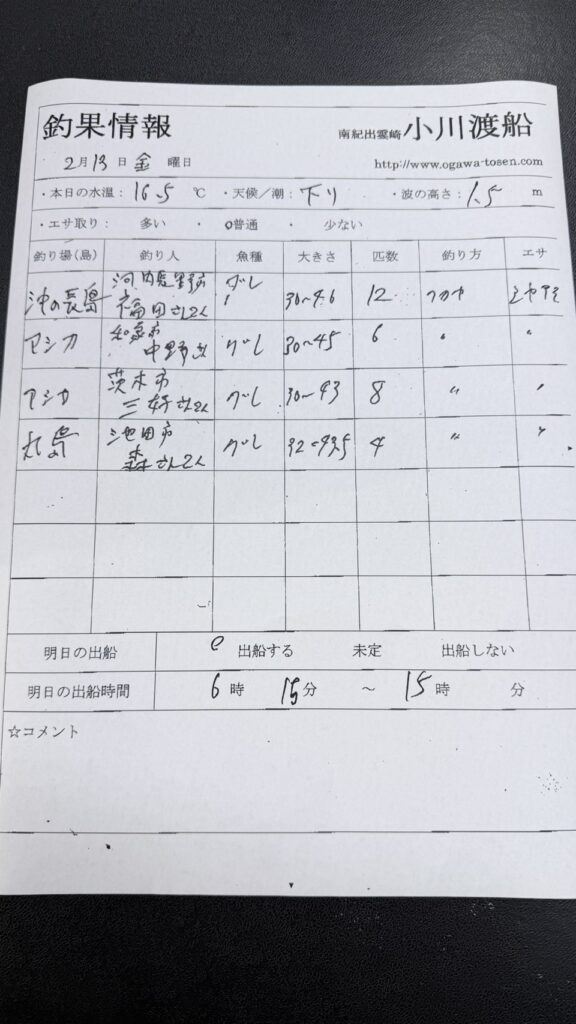 釣果情報
南紀出雲崎 小川渡船
2月13日 金 曜日
http://www.ogawa-tosen.com
・本日の水温： 16.5 ℃ ・天候／潮： 下り ・波の高さ： 1.5 m
・エサ取り： 多い ・ o普通 ・ 少ない
釣り場(島) 釣り人 魚種 大きさ 匹数 釣り方 エサ
沖の長島 河内長野市 福田さん2人 グレ 30〜46 12 フカセ
マシカ 中野さん グレ 30〜45 6 〃 〃
マシカ 茨木市 三好さん2人 グレ 30〜43 8 〃 〃
丸島 池田市 森さん2人 グレ 32〜43.5 4 〃 〃
明日の出船 o 出船する 未定 出船しない
明日の出船時間 6時 15分 〜 15時 分
☆コメント